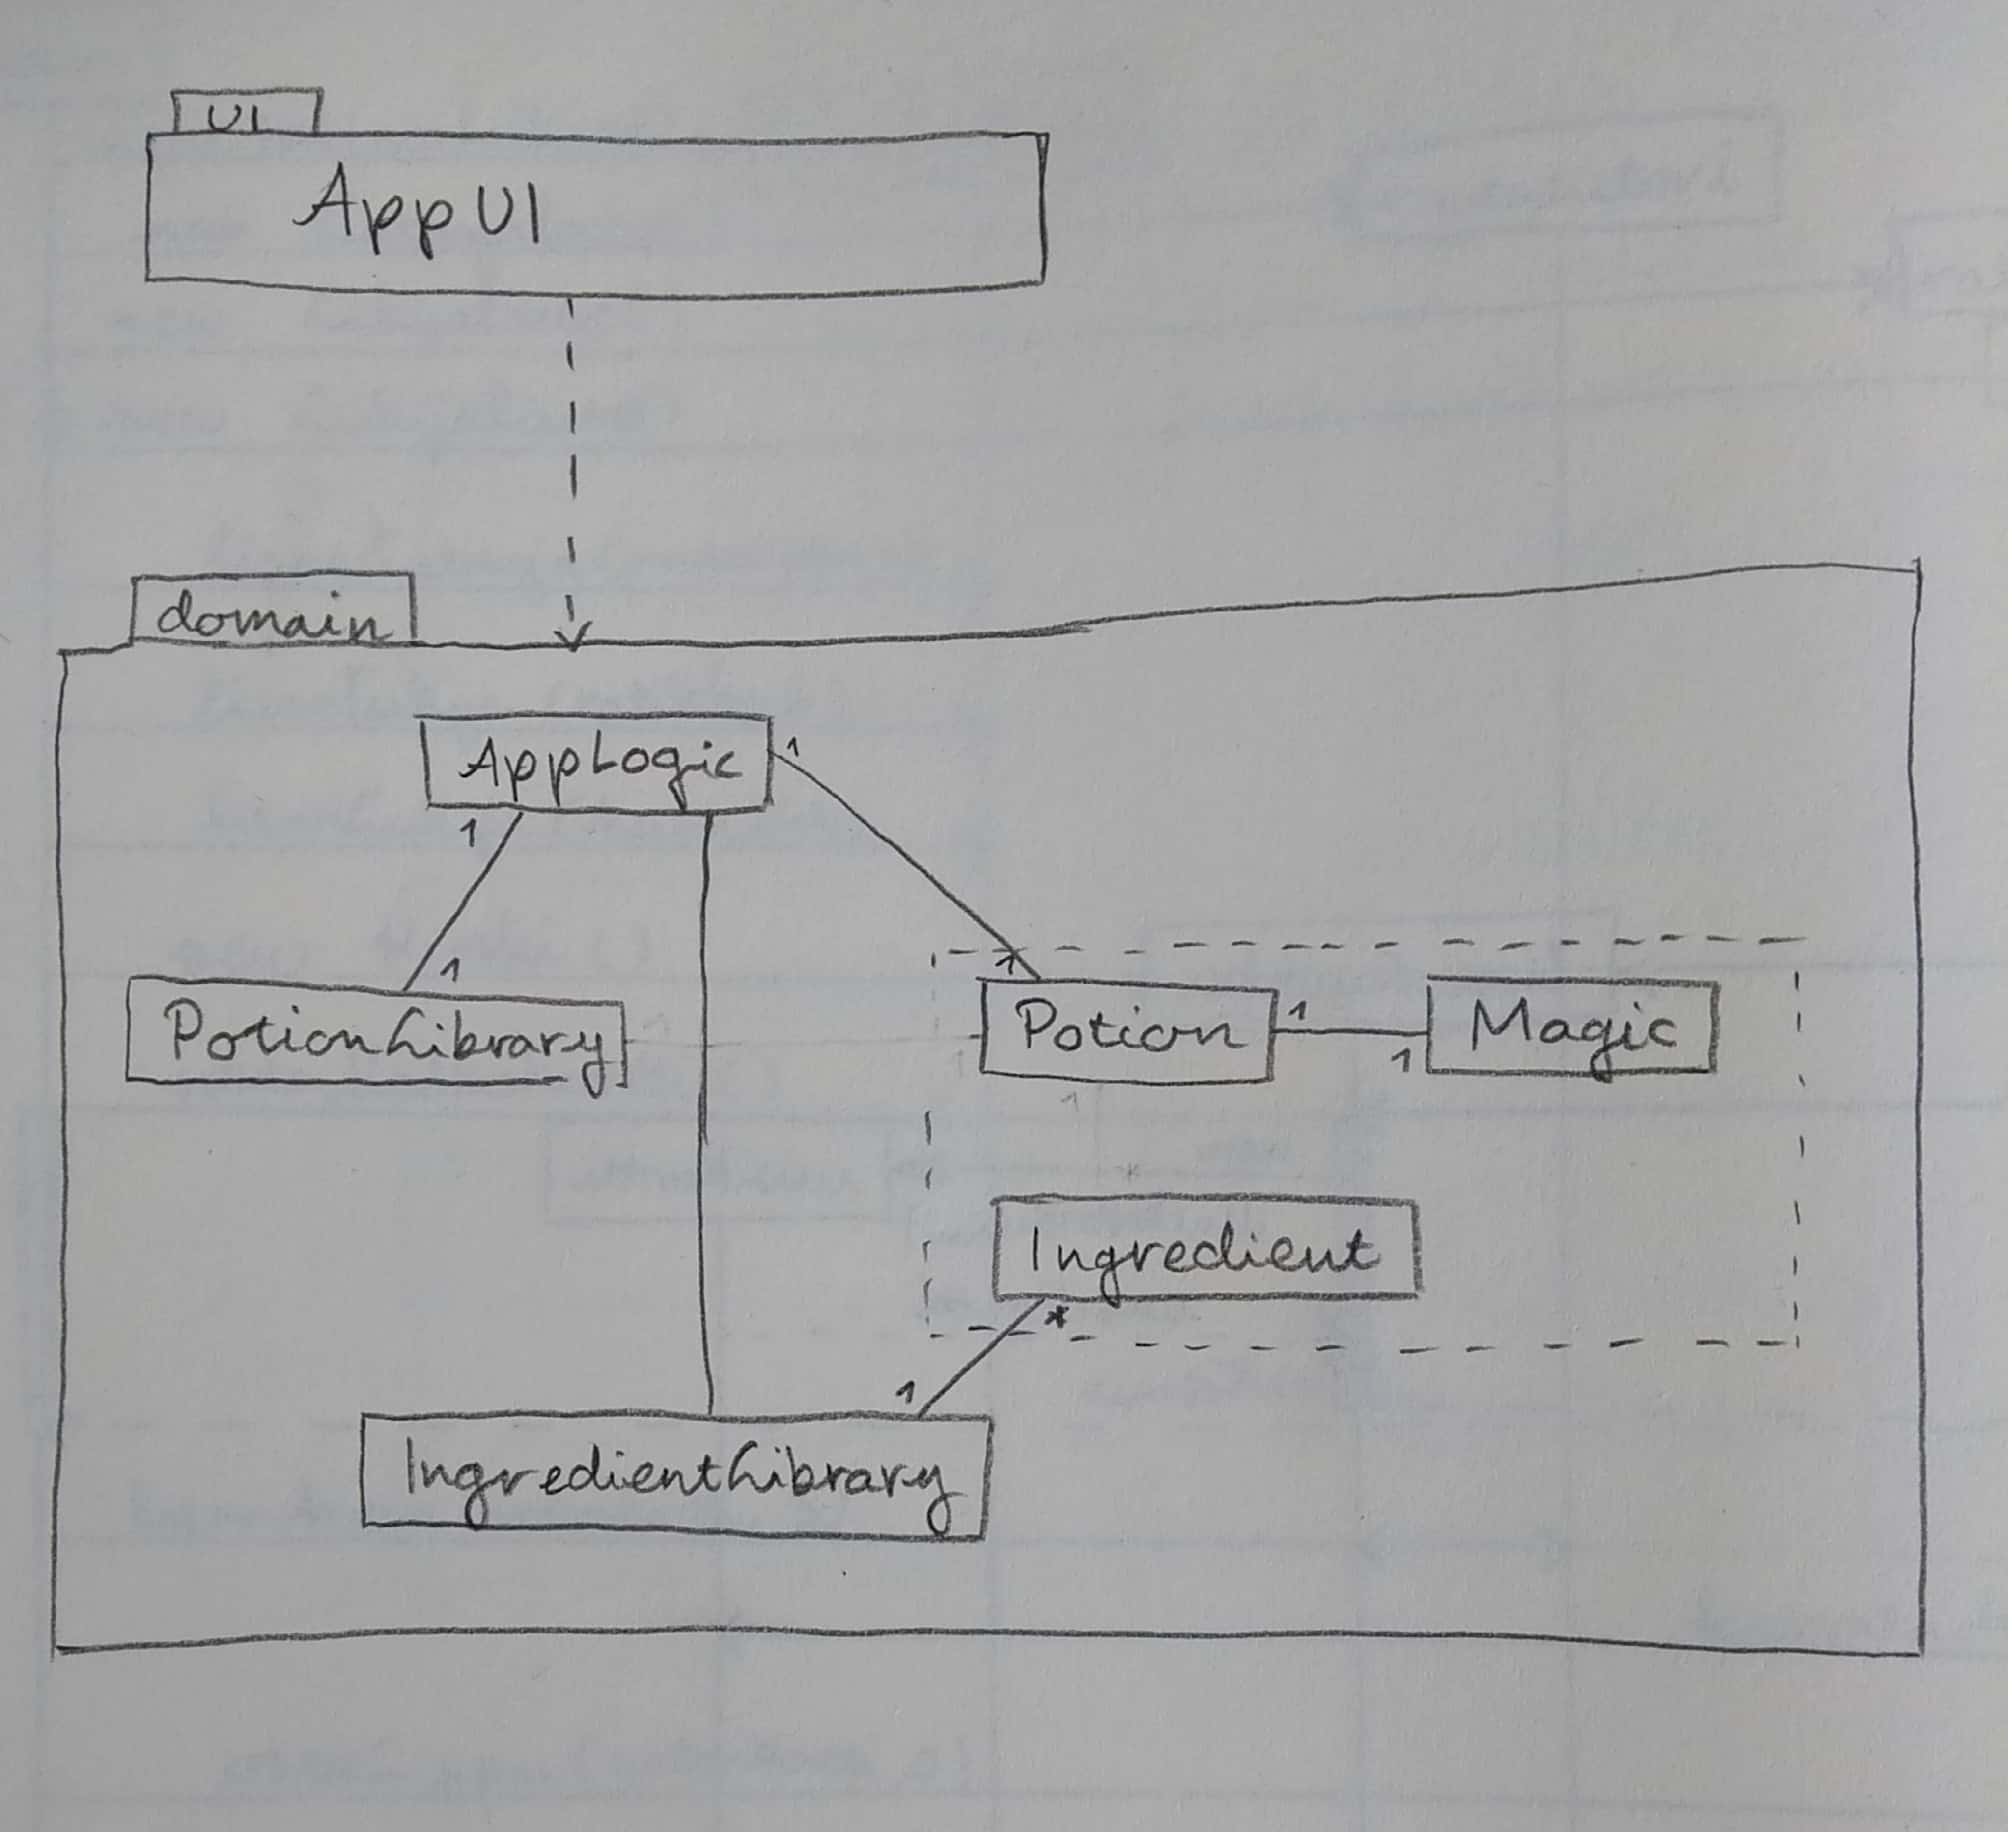 UI
AppUI
domain
AppLogic
1
1
1
1
PotionLibrary
Potion
1
1
Magic
Ingredient
*
1
IngredientLibrary